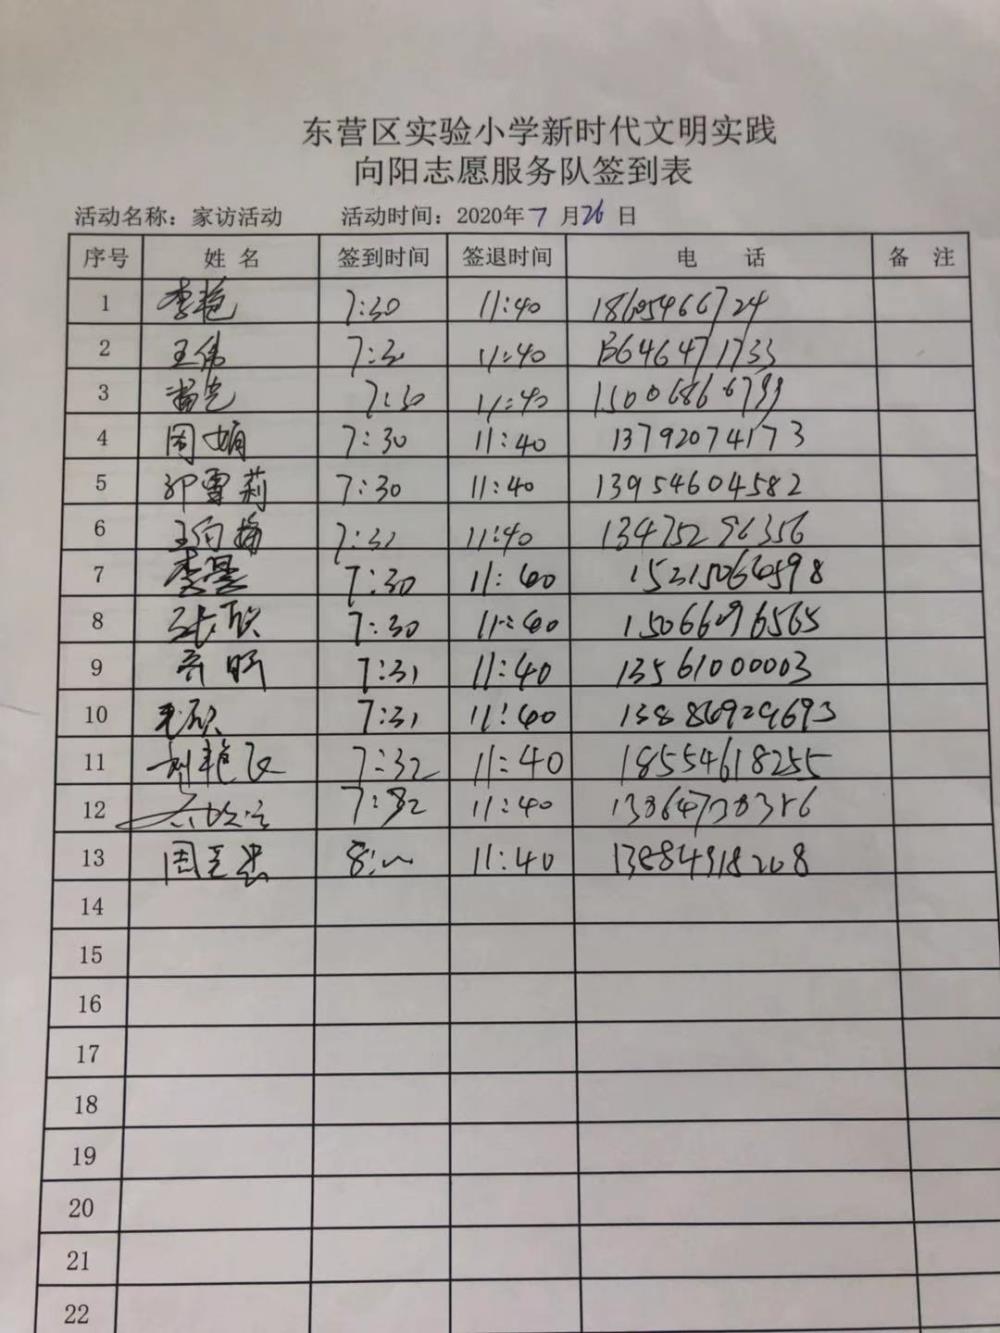 东营区实验小学新时代文明实践
向阳志愿服务队签到表
活动名称：家访活动 活动时间：2020年7月26日
序号 姓名 签到时间 签退时间 电话 备注
1 李艳 7:30 11:40 18605466724
2 王伟 7:30 11:40 13646471733
3 7:30 11:40 15006866799
4 周娟 7:30 11:40 13792074173
5 邱雪莉 7:30 11:40 13954604582
6 7:31 11:40 13475296356
7 李昙 7:30 11:40
8 张欣 7:30 11:40 15066096565
9 齐昕 7:31 11:40 13561000003
10 7:31 11:40
11 刘艳飞 7:32 11:40 18554618255
12 7:32 11:40
13 11:40 13884918208
14
15
16
17
18
19
20
21
22